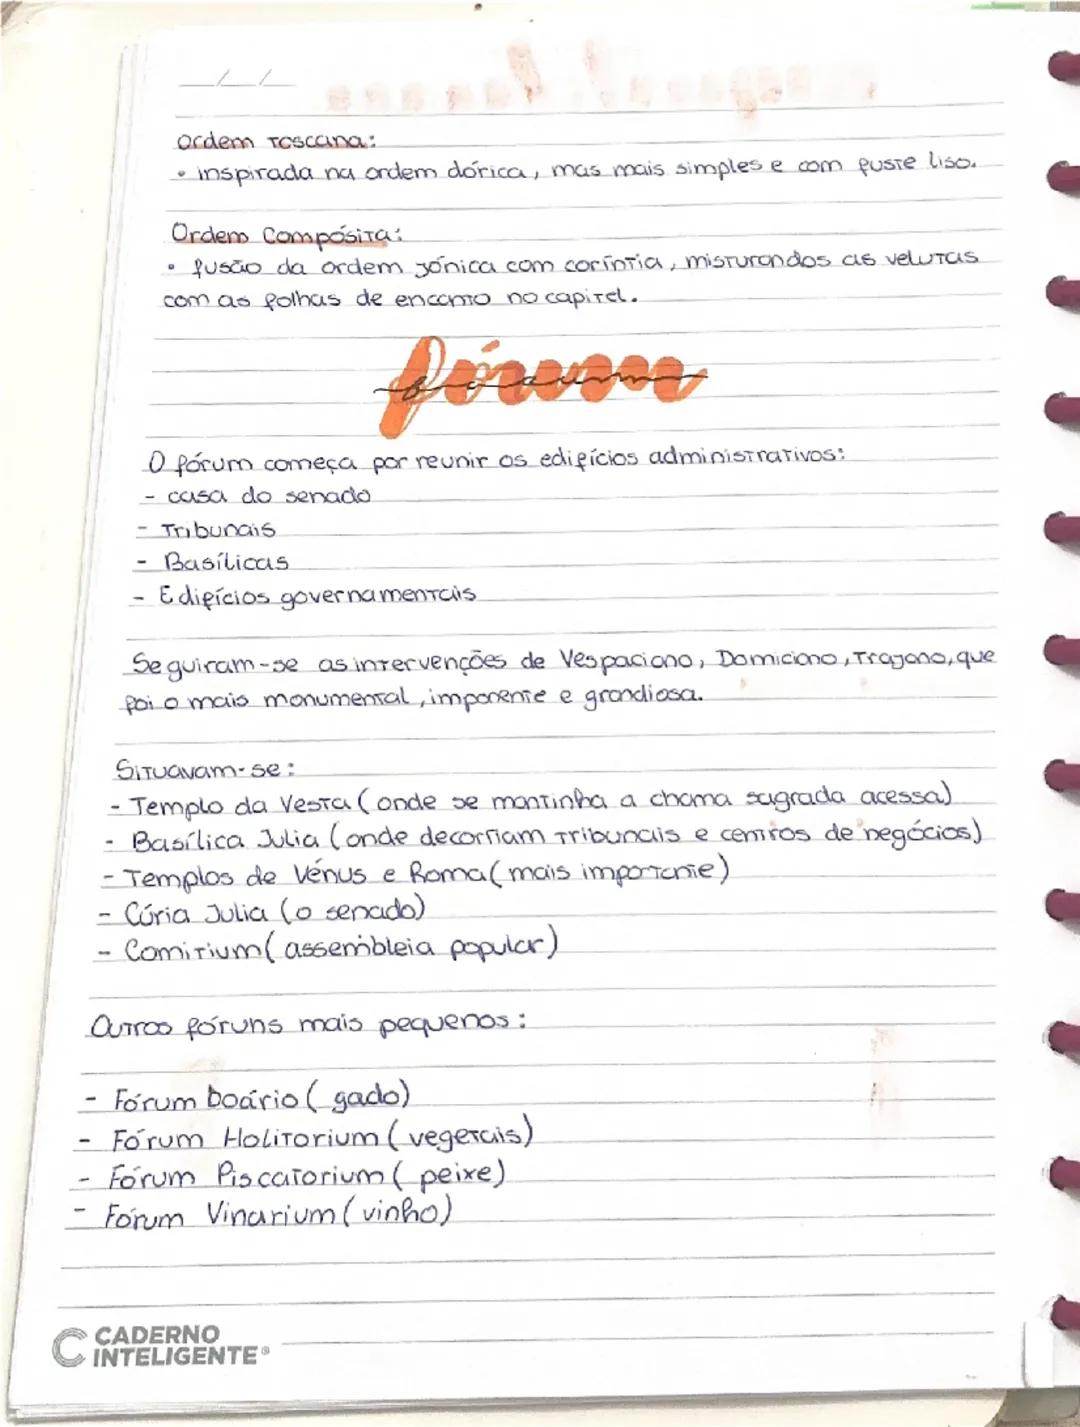 __/__/__
Ordem Toscana:
• inspirada na ordem dórica, mas mais simples e com fuste liso.
Ordem Compósita:
• fusão da ordem jónica com coríntia, misturandos as velutas
com as folhas de encanto no capitel.
fórum
O fórum começa por reunir os edifícios administrativos:
- casa do senado
- Tribunais
- Basílicas
- Edifícios governamentais
Seguiram-se as intervenções de Vespaciano, Domiciano, Trajano, que
foi o mais monumental, imponente e grandiosa.
Situavam-se:
- Templo da Vesta (onde se mantinha a chama sagrada acessa)
- Basílica Julia (onde decorriam tribunais e centros de negócios)
- Templos de Vénus e Roma (mais importante)
- Cúria Julia (o senado)
- Comitium (assembleia popular)
Outros fóruns mais pequenos:
- Fórum boário (gado)
- Fórum Holitorium (vegetais)
- Fórum Piscatorium (peixe)
- Fórum Vinarium (vinho)
CADERNO
INTELIGENTE®